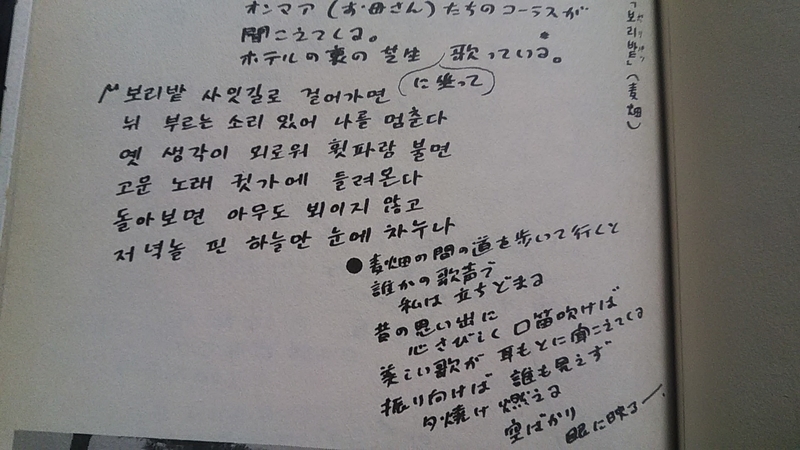 オンマア（お母さん）たちのコーラスが
聞こえてくる。
ホテルの裏の芝生に坐って歌っている。
보리밭 사잇길로 걸어가면
뉘 부르는 소리 있어 나를 멈춘다
옛 생각이 외로워 휫파람 불면
고운 노래 귓가에 들려온다
돌아보면 아무도 뵈이지 않고
저녁놀 핀 하늘만 눈에 차누나
●麦畑の間の道を歩いて行くと
誰かの歌声で
私は立ちどまる
昔の思い出に
心さびしく口笛吹けば
美しい歌が耳もとに聞こえてくる
振り向けば誰も見えず
夕焼け燃える
空ばかり
眼に映るー。
「보리밭」（麦畑）